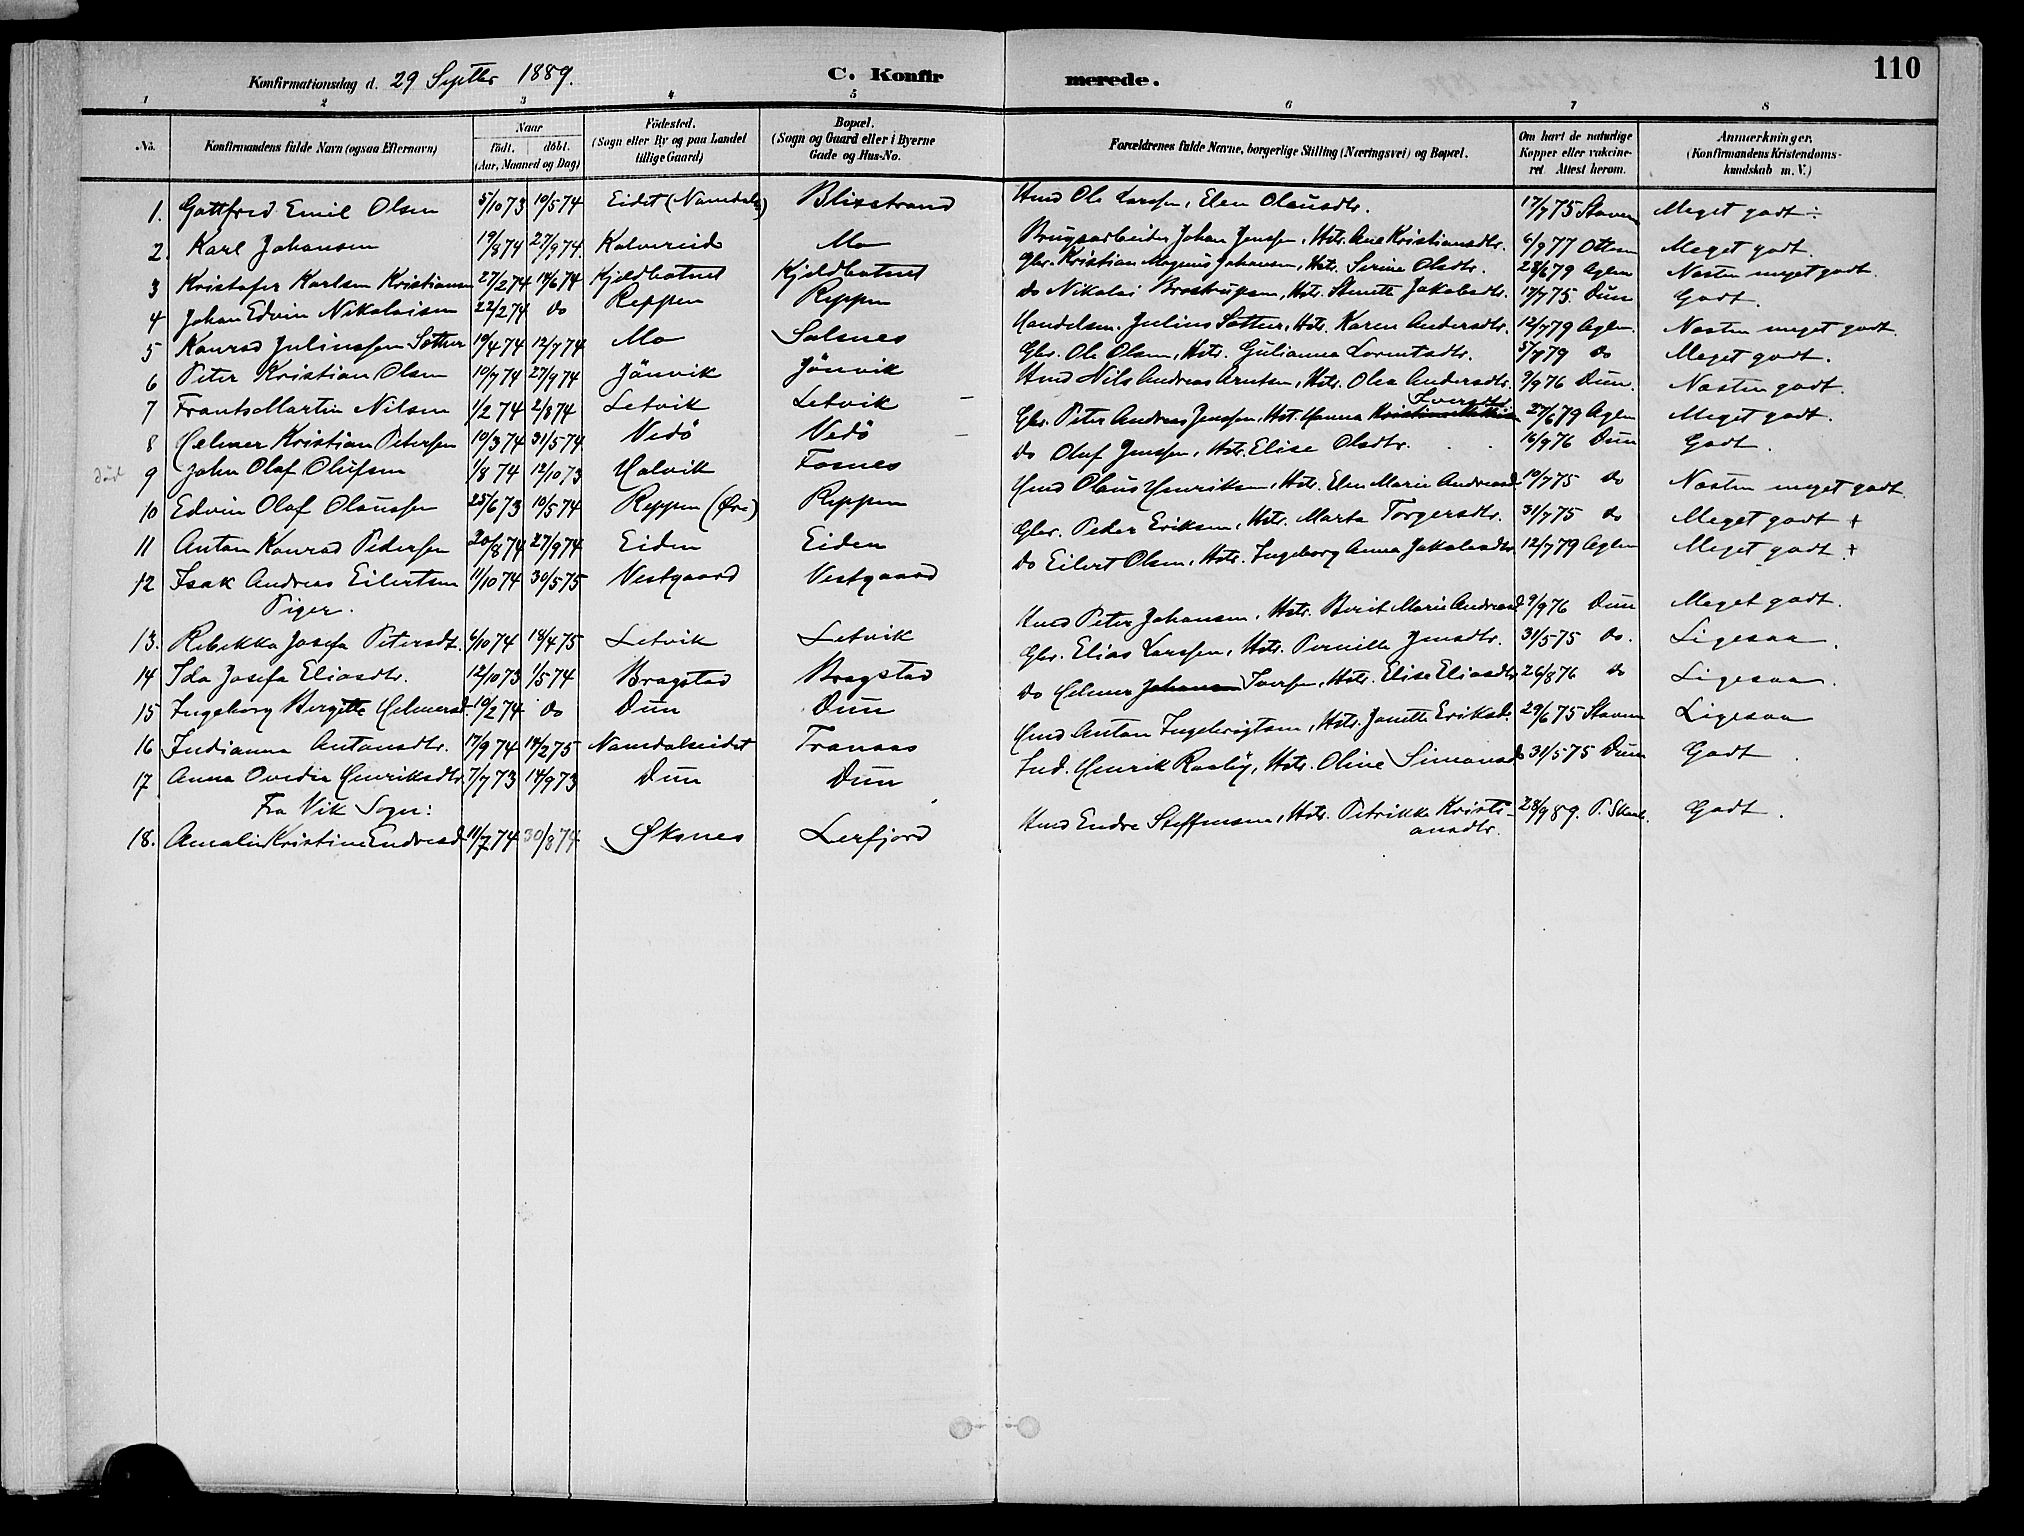 110
Konfirmationsdag d. 29 Septbr 1889. C. Konfirmerede.
1 2 3 4 5 6 7 8
No. Konfirmandens fulde Navn (ogsaa Efternavn) Naar født. døbt. (Aar, Maaned og Dag) Fødested. (Sogn eller By og paa Landet tillige Gaard) Bopæl. (Sogn og Gaard eller i Byerne Gade og Hus-No. Forældrenes fulde Navne, borgerlige Stilling (Næringsvei) og Bopæl. Om havt de naturlige Kopper eller vakcineret. Attest herom. Anmærkninger. (Konfirmandens Kristendomskundskab m. V.)
1. Gottfred Emil Olsen 5/10 73 10/5 74 Eidet (Namdals) Blixstrand Hmd Ole Larssen, Elen Olausdtr. 17/7 75 Staven Meget godt ÷
2. Karl Johansen 19/8 74 27/9 74 Kalvereid Mo Brugsarbeider Johan Jenssen, Hstr. Ane Kristiansdtr. 6/9 77 Ottsen Meget godt.
3 Kristofer Karlsen Kristiansen 27/2 74 14/6 74 Kjeldbotnet Kjeldbotnet Gbr. Kristian Magnus Johansen, Hstr. Serine Olsdtr. 28/6 79 Aglen Næsten meget godt.
4 Johan Edvin Nikolaisen 22/2 74 do Reppen Reppen do Nikolai Brostrupsen, Hstr. Jakobsdtr. 17/7 75 Dun Godt.
5 Konrad Juliussen Sæther 19/4 74 12/7 74 Mo Salsnes Handelsm. Julius Sæther, Hstr. Karen Andersdtr. 12/7 79 Aglen. Næsten meget godt.
6 Peter Kristian Olsen 10/7 74 27/9 74 Jönvik Jönvik Gbr. Ole Olsen, Hstr. Gulianna Lorentsdtr. 5/7 79 do Meget godt.
7 Frants Martin Nilsen 1/2 74 2/8 74 Letvik Letvik Hmd Nils Andreas Arntsen, Hstr. Olea Andersdtr. 9/9 76 Dun. Næsten godt.
8 Helmer Kristian Petersen 10/3 74 31/5 74. Vedö Vedö Gbr. Peter Andreas Jenssen, Hst. Hanna Iversdtr 27/6 79 Aglen Meget godt.
död 9 John Olaf Olufsen 1/8 74 12/10 73 Halvik Fosnes do Oluf Jenssen, Hstr. Elise Olsdtr. 16/9 76 Dun Godt.
10 Edvin Olaf Olaussen 25/6 73 10/5 74 Reppen (Øvre) Reppen Hmd Olaus Henriksen, Hstr. Elen Marie Andreasd. 10/7 75 do Næsten meget godt.
11 Anton Konrad Pedersen 20/8 74 27/9 74 Eiden Eiden Gbr. Peder Eriksen, Hstr. Marta Torgersdtr. 31/7 75 do Meget godt +
12 Isak Andreas Eilertsen 11/10 74 30/5 75 Vestgaard Vestgaard do Eilert Olsen, Hstr. Ingeborg Anna Jakobsdtr. 12/7 79 Aglen Meget godt +
Piger.
13. Rebekka Josefa Petersdt. 6/10 74 18/4 75 Letvik Letvik Hmd Peter Johansen, Hstr. Berit Marie Andreasd. 9/9 76 Dun Meget godt.
14 Ida Josefa Eliasdtr. 12/10 73 1/5 74 Bragstad Bragstad Gbr. Elias Larssen, Hstr. Pernille Jensdtr. 31/5 75 do. Ligesaa.
15 Ingeborg Bergitte Helmersd. 10/2 74 do Dun Dun do Helmer Johansen Iversen, Hstr. Elise Eliasdtr 26/8 76 do Ligesaa.
16 Indianna Antonsdtr. 17/9 74 14/2 75 Namdalseidet Tranaas Hmd Anton Ingebrigtsen, Hstr. Janette Eriksd. 29/6 75 Staven Ligesaa
17 Anna Ovedia Henriksdtr. 7/7 73 14/9 73 Dun Dun Ind. Henrik Rasby, Hstr. Oline Simonsd. 31/5 75 Dun Godt
Fra Vik Sogn:
18. Amalie Kristine Endresd. 11/7 74 30/8 74 Øksnes Lerfjord Hmd Endre Steffensen, Hstr. Petrikke Kristiansdtr. 28/9 89. P. Godt.